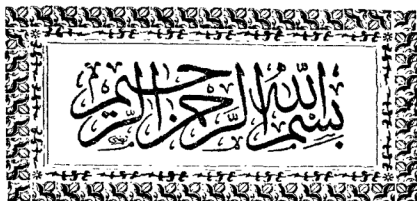 بسم الله الرحمن الرحيم